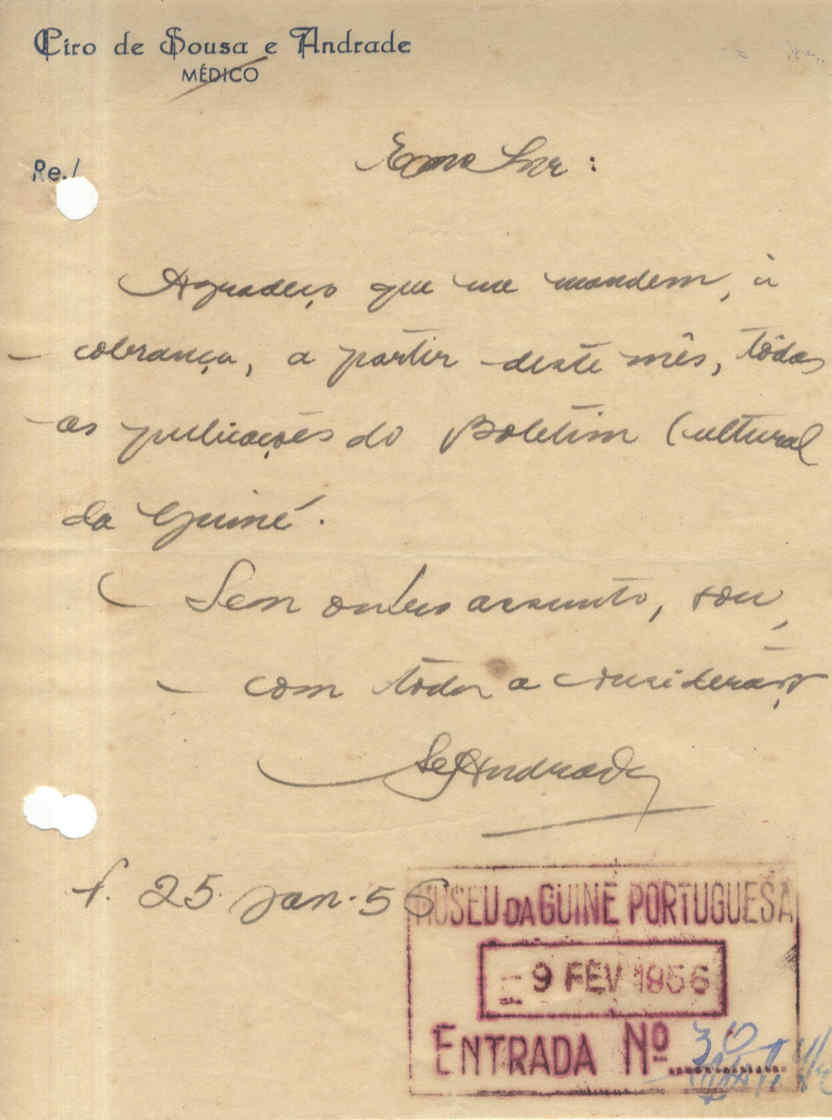 Ciro de Sousa e Andrade
MÉDICO
Re./
Exmo Snr :
Agradeço que me mandem, à
cobrança, a partir deste mês, tôdas
as publicações do Boletim Cultural
da Guiné.
Sem outro assunto, sou,
com tôda a consideração
SeAndrade
f. 25. Jan. 56
MUSEU DA GUINE PORTUGUESA
9 FEV 1956
ENTRADA Nº 30